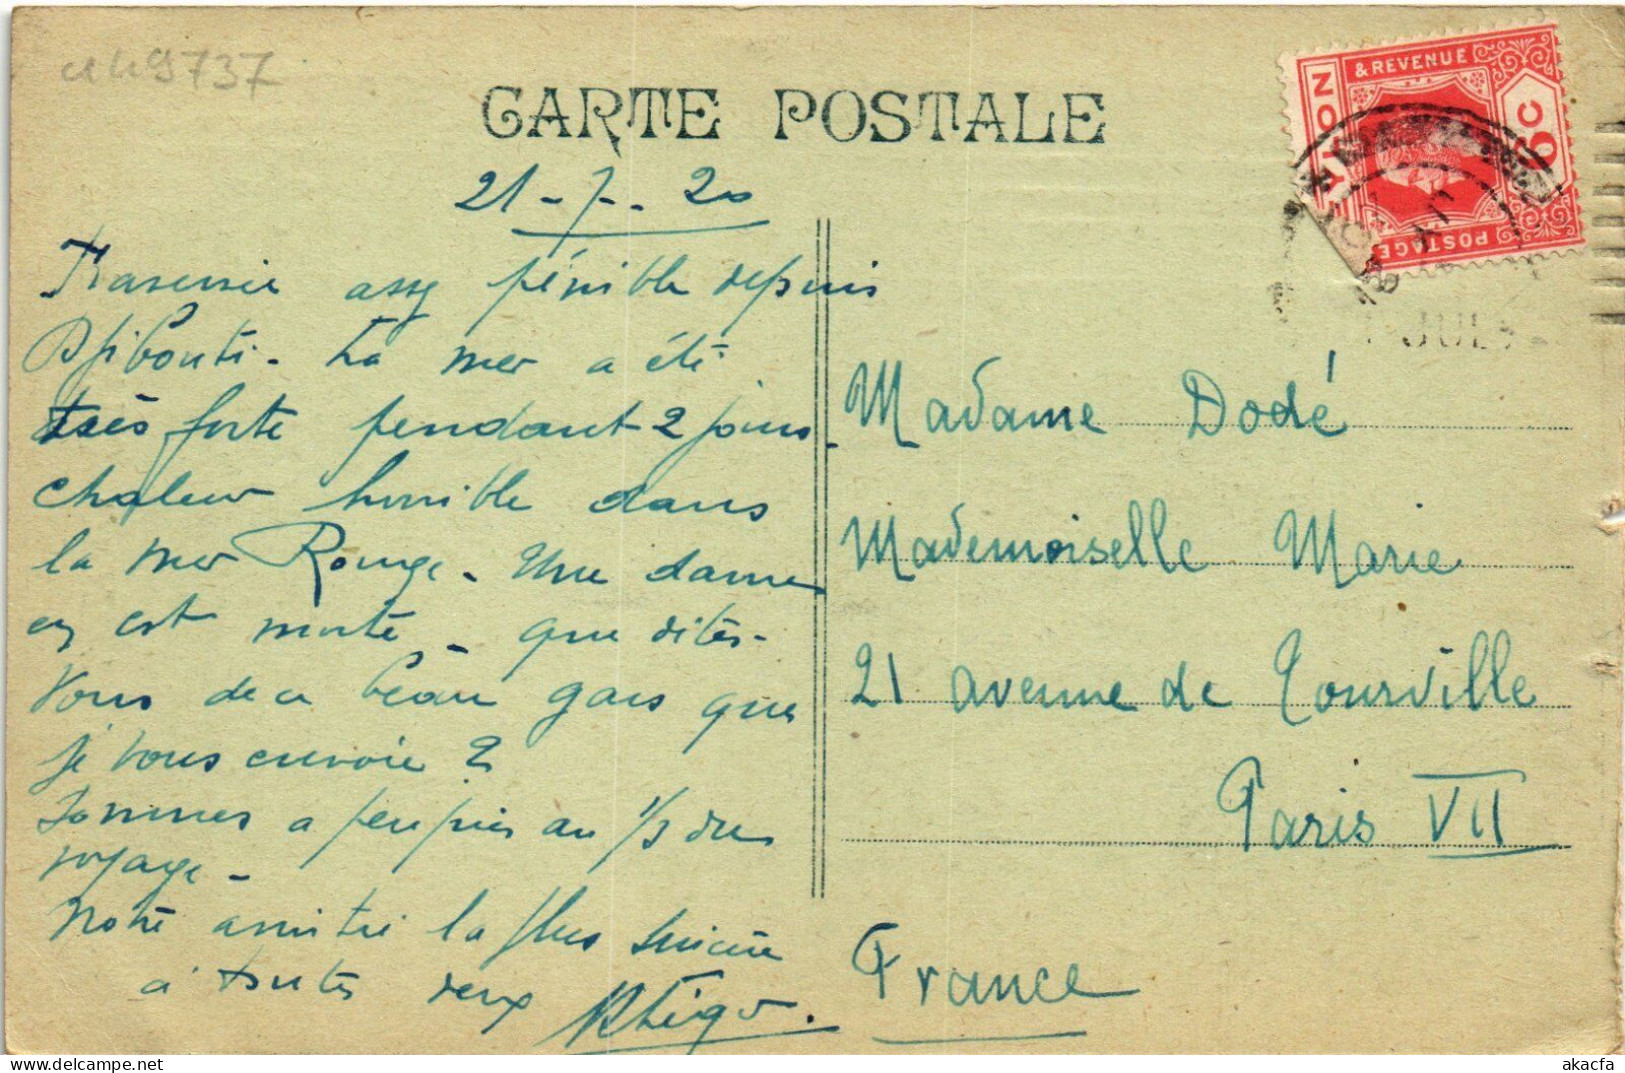 a49737
CARTE POSTALE
21-7-20
Traversée assez pénible depuis
Djibouti - La mer a été
très forte pendant 2 jours.
chaleur horrible dans
la mer Rouge - Une dame
en est morte - que dites-
vous de ce beau gars que
je vous envoie ?
Sommes a peu près au 1/3 du
voyage -
Notre amitié la plus sincère
à toutes deux
YLON
& REVENUE
6C
POSTAGE
JUL
Madame Dodé
Mademoiselle Marie
21 avenue de Tourville
Paris VII
France
akacfa